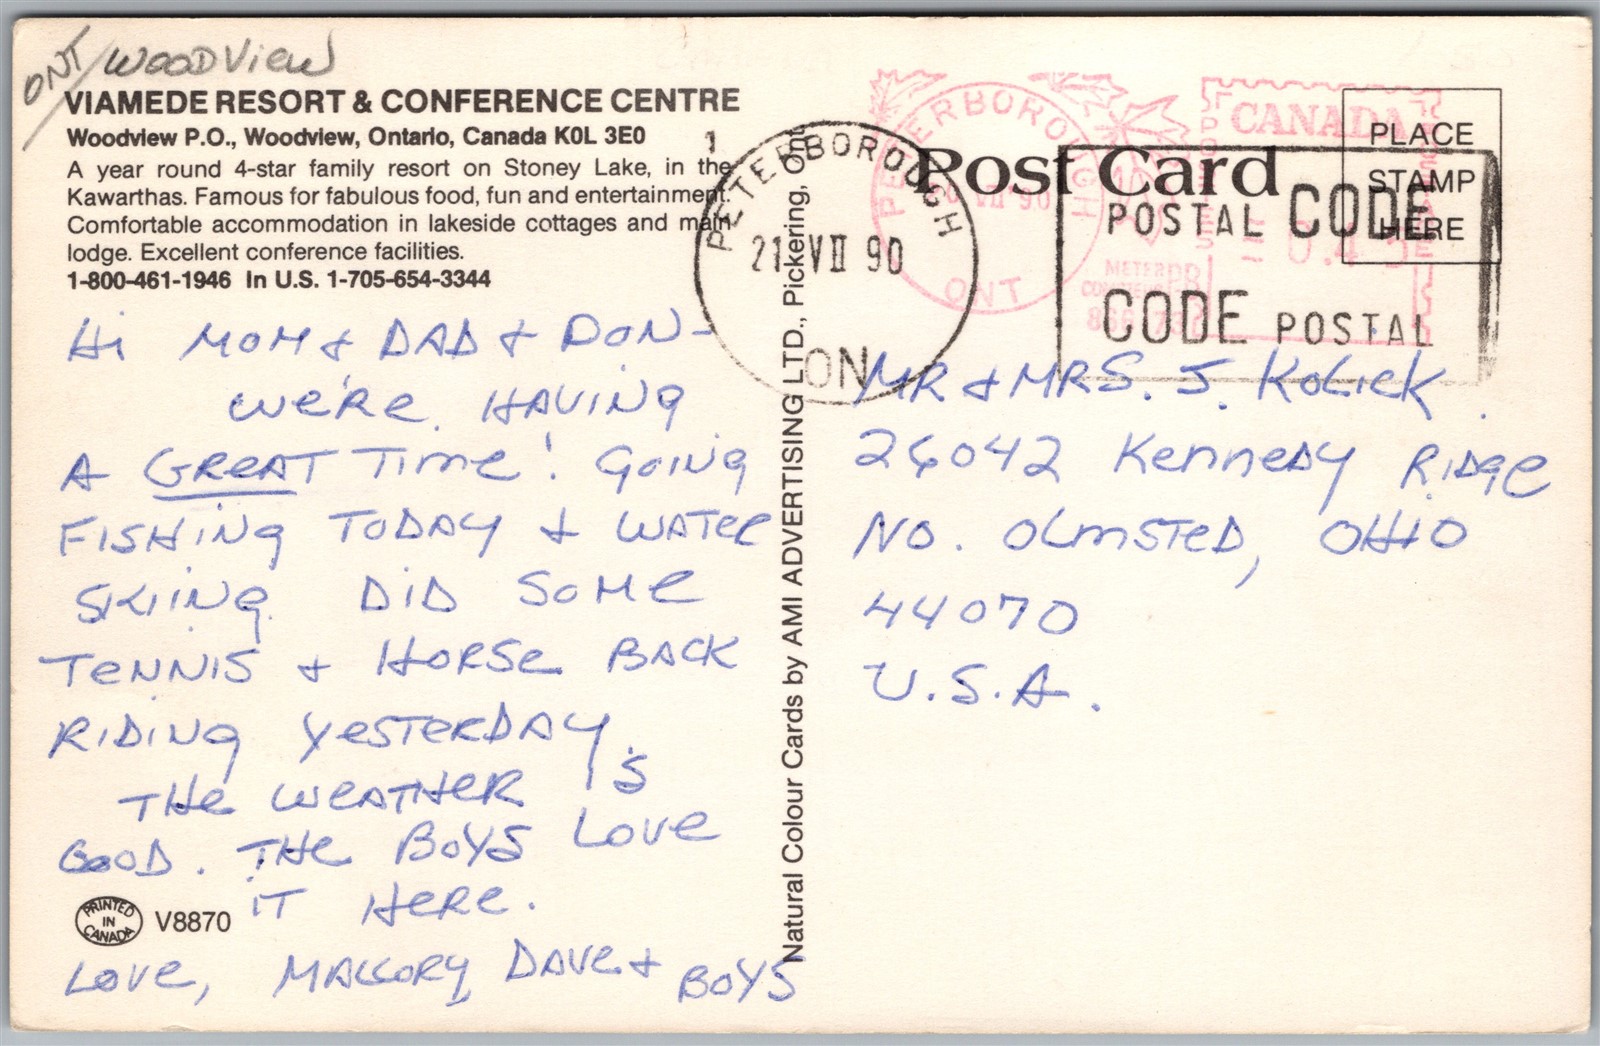 ONT/WOODVIEW
VIAMEDE RESORT & CONFERENCE CENTRE
Woodview P.O., Woodview, Ontario, Canada K0L 3E0
A year round 4-star family resort on Stoney Lake, in the
Kawarthas. Famous for fabulous food, fun and entertainment.
Comfortable accommodation in lakeside cottages and main
lodge. Excellent conference facilities.
1-800-461-1946 In U.S. 1-705-654-3344
Hi MOM & DAD & DON-
WE'RE HAVING
A GREAT TIME! GOING
FISHING TODAY & WATER
SKIING. DID SOME
TENNIS & HORSE BACK
RIDING YESTERDAY.
THE WEATHER IS
GOOD. THE BOYS LOVE
IT HERE.
LOVE, MALLORY, DAVE & BOYS
PRINTED
IN
CANADA
V8870
Natural Colour Cards by AMI ADVERTISING LTD., Pickering, Ont
Post Card
PLACE
STAMP
HERE
1
PETERBOROUGH
21 VII 90
ON
PETERBOROUGH
VII 90
ONT
CANADA
POSTAL CODE
CODE POSTAL
MR & MRS. J. KOLICK
26042 KENNEDY RIDGE
NO. OLMSTED, OHIO
44070
U.S.A.